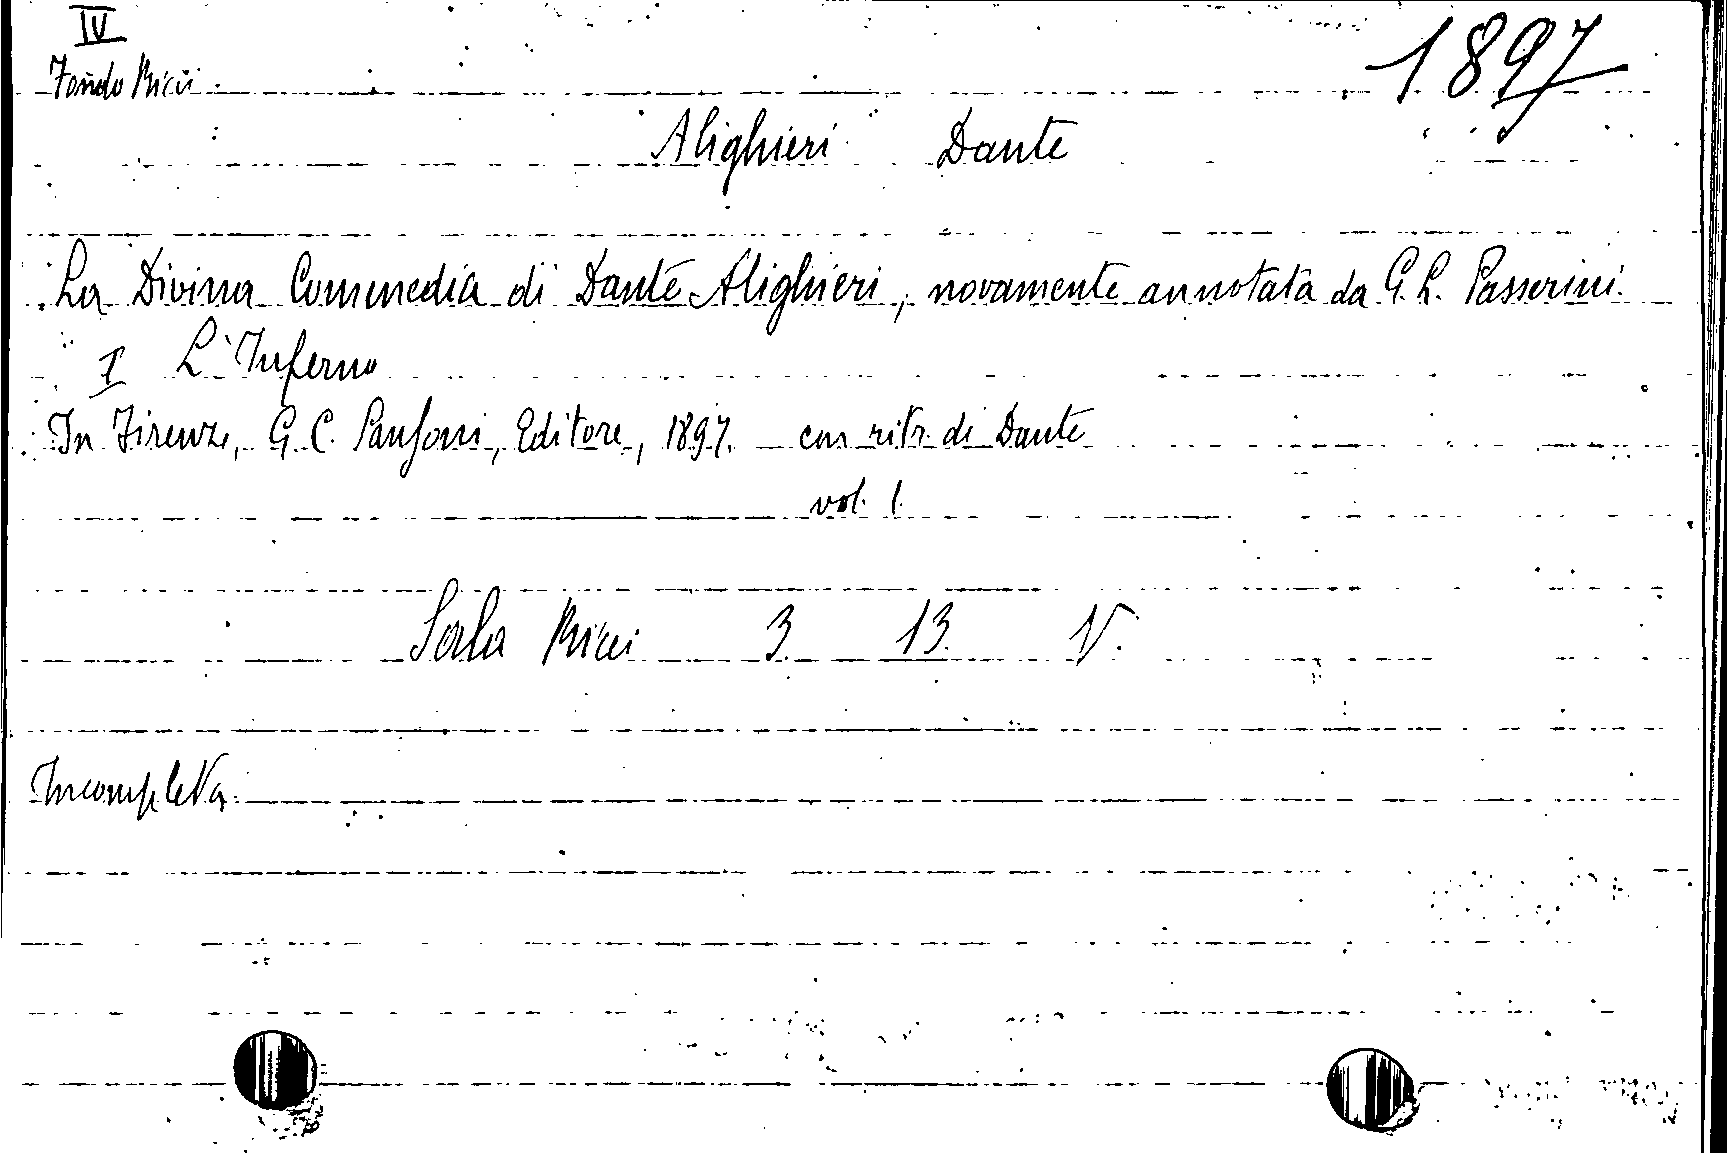 IV
1897
Fondo Ricci
Alighieri Dante
La Divina Commedia di Dante Alighieri, novamente annotata da G. L. Passerini.
I L'Inferno
In Firenze, G. C. Sansoni, Editore, 1897. con ritr. di Dante
vol. 1.
Sala Ricci 3. 13. V.
Incompleta